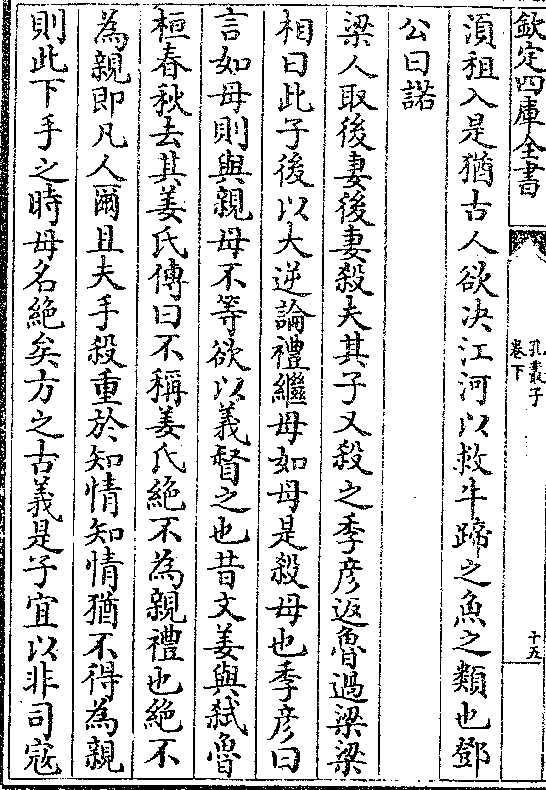 欽定四庫全書
孔叢子
卷下
十五
湏租入是猶古人欲决江河以救牛蹄之魚之類也鄧
公曰諾
梁人取後妻後妻殺夫其子又殺之季彦返魯過梁梁
相曰此子後以大逆論禮繼母如母是殺母也季彦曰
言如母則與親母不等欲以義督之也昔文姜與弑魯
桓春秋去其姜氏傳曰不稱姜氏絶不為親禮也絶不
為親即凡人爾且夫手殺重於知情知情猶不得為親
則此下手之時母名絶矣方之古義是子宜以非司寇